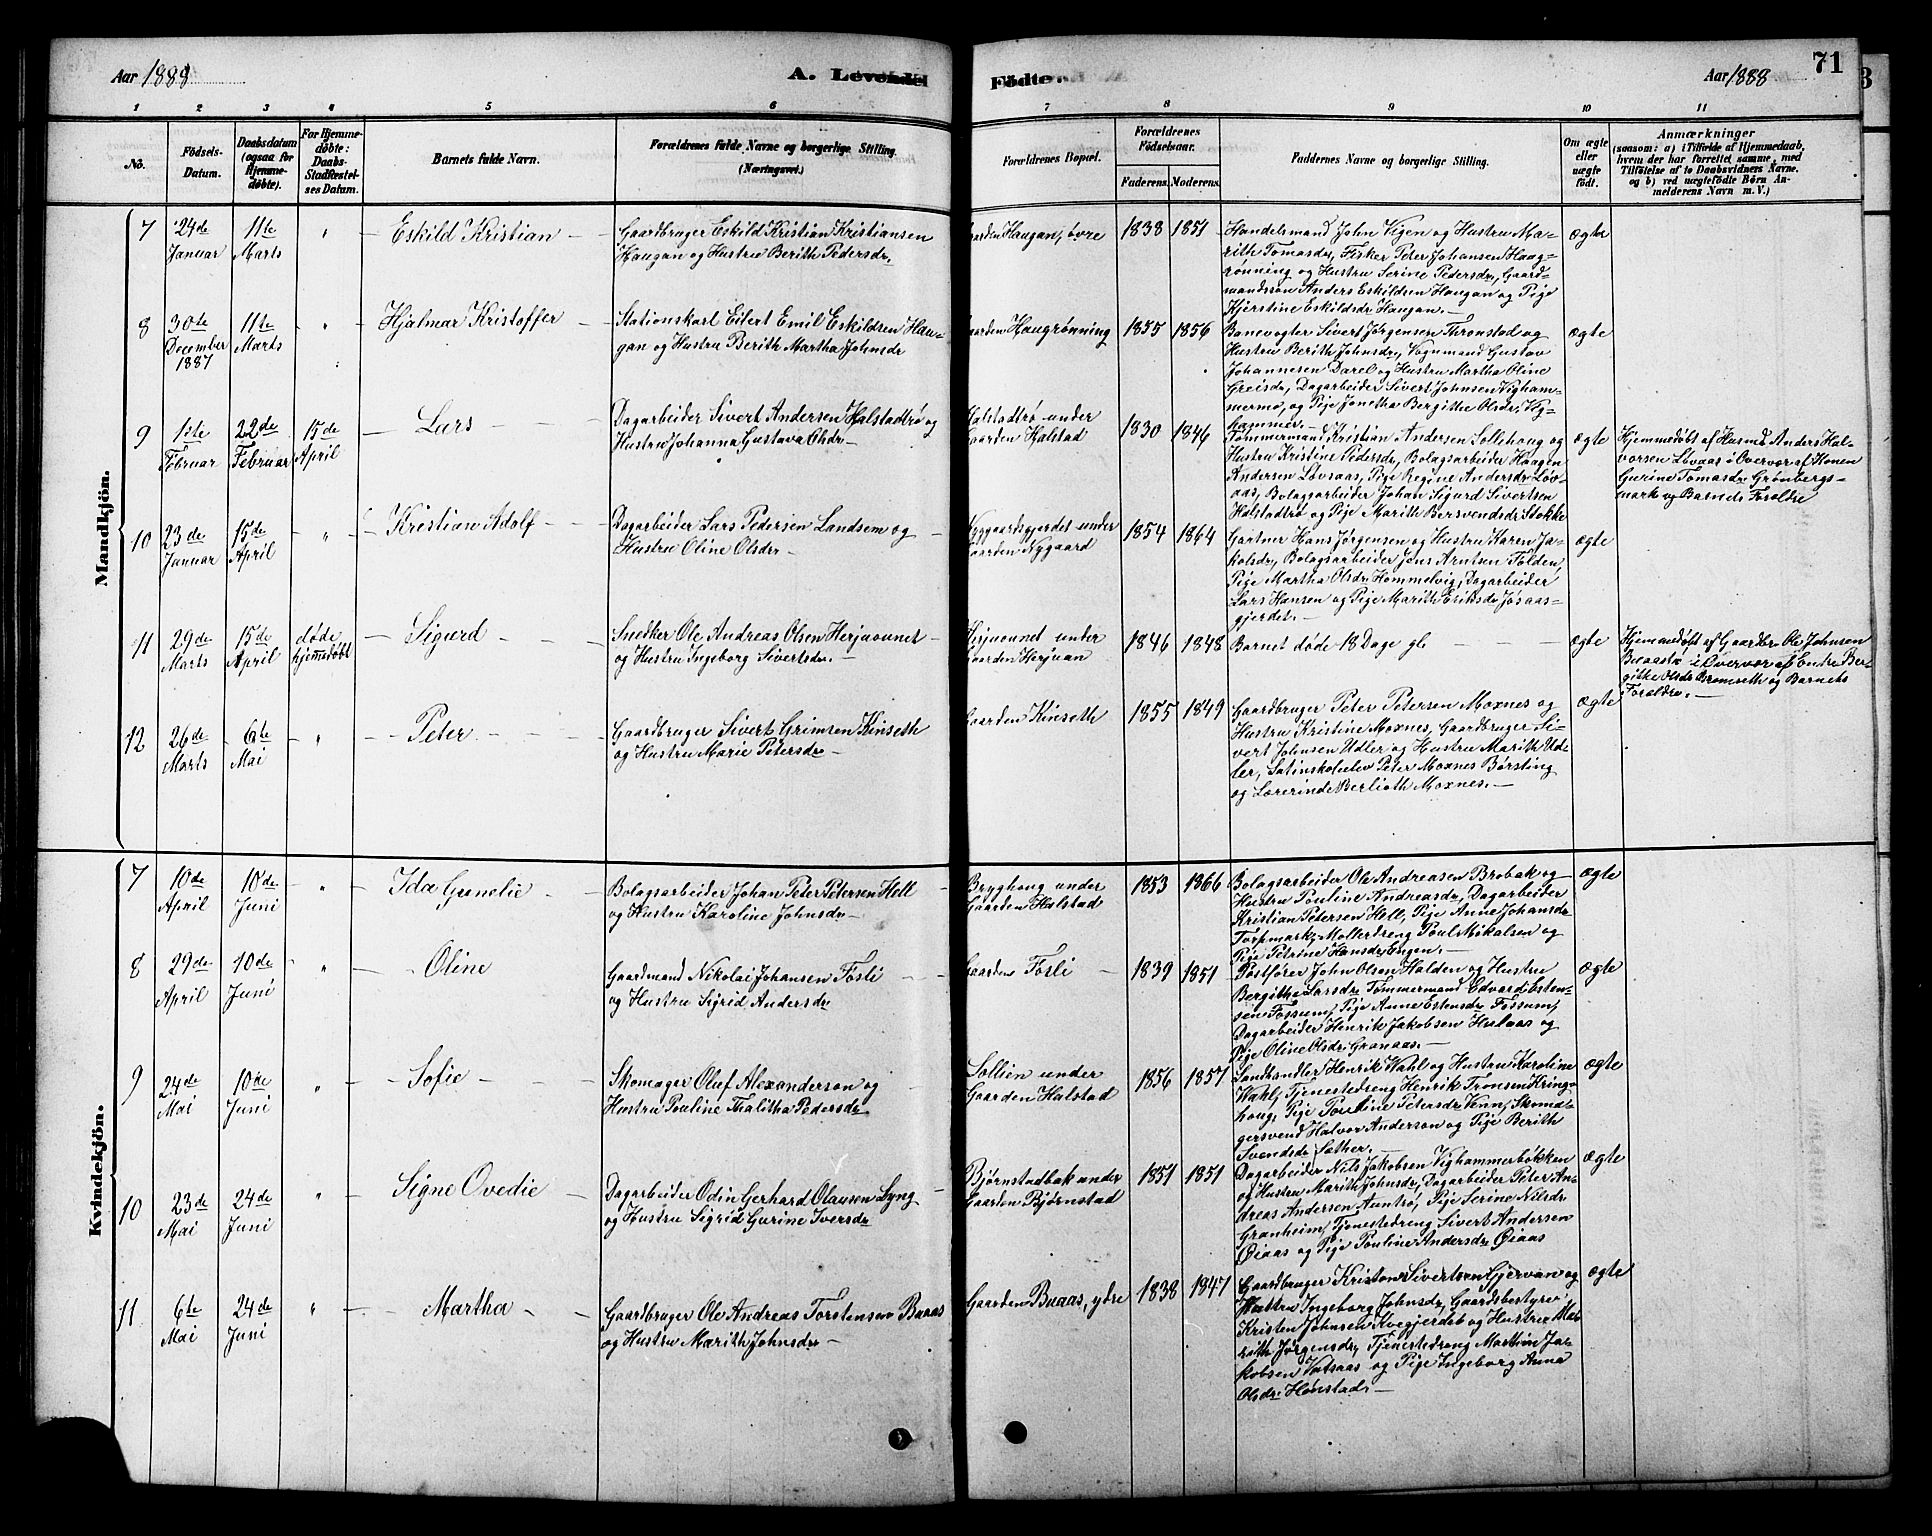 Aar 1888
A. Levende
Födte.
Aar 1888
71
1 2 3 4 5 6 7 8 9 10 11
No.
Födsels-
Datum.
Daabsdatum
(ogsaa for
Hjemme-
döbte).
For Hjemme-
döbte:
Daabs-
Stadfæstel-
ses Datum.
Barnets fulde Navn.
Forældrenes fulde Navne og borgerlige Stilling.
(Næringsvei.)
Forældrenes Bopæl.
Forældrenes
Födselsaar.
Faderens. Moderens.
Faddernes Navne og borgerlige Stilling.
Om ægte
eller
uægte
födt.
Anmærkninger
(saasom: a) i Tilfælde af Hjemmedaab,
hvem der har forrettet samme, med
Tilföielse af to Daabsvidners Navne.
og b) ved uægtefödte Börn An-
melderens Navn m. V.)
Mandkjön.
7
24de
Januar
11te
Marts
"
Eskild Kristian
Gaardbruger Eskild Kristian Kristiansen
Haugan og Hustru Berith Pedersdr.
Gaarden Haugan, övre
1838 1851
Handelsmand John Vigen og Hustru Ma-
rith Tomasdr, Fisker Peter Johansen Haug-
rønning og Hustru Serine Pedersdr, Gaard-
mandssøn Anders Eskildsen Haugan og Pige
Kjerstine Eskildsdr Haugan.
ægte
8
30te
December
1887
11te
Marts
"
Hjalmar Kristoffer
Stationskarl Eilert Emil Eskildsen Hau-
gan og Hustru Berith Martha Johnsdr
Gaarden Haugrønning
1855 1856
Banevogter Sivert Jørgensen Thronstad og
Hustru Berith Johnsdr, Vognmand Gustav
Johannesen Darel og Hustru Martha Oline
Greisdr, Dagarbeider Sivert Johnsen Vigham-
mermo, og Pige Jonetha Bergitha Olsdr, Vig-
hammer.
ægte
9
1ste
Februar
22de
Februar
15de
April
Lars
Dagarbeider Sivert Andersen Halstadtrø og
Hustru Johanna Gustava Olsdr
Halstadtrø under
Gaarden Halstad
1830 1846
Tømmermand Kristian Andersen Sollihoug og
Hustru Kristine Pedersdr, Bolagsarbeider Haagen
Andersen Løvsaas, Pige Regine Andersdr Løv-
aas, Bolagsarbeider Johan Sigurd Sivertsen
Halstadtrø og Pige Marith Bersvendsdr Stokke
ægte
Hjemmedøbt af Husmd Anders Hal-
vorsen Løvaas i Overvær af Konen
Gurine Tomasdr Grønbergs-
mark og Barnets Forældre
10
23de
Januar
15de
April
"
Kristian Adolf
Dagarbeider Lars Pedersen Landsem og
Hustru Oline Olsdr
Nygaardsgjerdet under
Gaarden Nygaard
1854 1864
Gartner Hans Jørgensen og Hustru Karen Ja-
kobsdr, Bolagsarbeider Jens Arntsen Folden,
Pige Martha Olsdr Hommelvig, Dagarbeider
Lars Hansen og Pige Marith Eriksdr Jøsaas-
gjerdet.
ægte
11
29de
Marts
15de
April
døde
hjemdøbt
Sigurd
Snedker Ole Andreas Olsen Herjuounet
og Hustru Ingeborg Sivertsdr.
Herjuounet under
Gaarden Herjuan
1846 1848
Barnet døde 18 Dage gl.
ægte
Hjemmedøbt af Gaardbr Ole Johnsen
i Overvær af Enke Ber-
gitte Olsdr og Barnets
Forældre.
12
26de
Marts
6te
Mai
"
Peter
Gaardbruger Sivert Grimsen Kinseth
og Hustru Marie Petersdr
Gaarden Kinseth
1855 1849
Gaardbruger Peter Petersen Moxnes og
Hustru Kristine Moxnes, Gaardbruger Si-
vert Johnsen Udler og Hustru Marith Ud-
ler, Latinskoleelev Peter Moxnes Børsting
og Lærerinde Berlioth Moxnes.
ægte
Kvindekjön.
7
10de
April
10de
Juni
"
Ida Gunelie
Bolagsarbeider Johan Peter Petersen Hell
og Hustru Karoline Johnsdr
Bryghoug under
Gaarden Halstad
1853 1866
Bolagsarbeider Ole Andreasen Brobak og
Hustru Pouline Andreasdr, Dagarbeider
Kristian Petersen Hell, Pige Anne Johansdr
Torpmark, Møllerdreng Poul Mikalsen og
Pige Petrine Hansdr Engen.
ægte
8
29de
April
10de
Juni
"
Oline
Gaardmand Nikolai Johansen Fosli
og Hustru Sigrid Andersdr
Gaarden Fosli
1839 1851
Postfører John Olsen Halden og Hustru
Bergitha Larsdr Tømmermand Edvard Esten-
sen Fossum, Pige Anne Estensdr Fossum,
Dagarbeider Henrik Jakobsen Hulaas og
Pige Oline Olsdr Granaas.
ægte
9
24de
Mai
10de
Juni
"
Sofie
Skomager Oluf Alexanderson og
Hustru Pouline Thalitha Pedersdr
Sollien under
Gaarden Halstad
1856 1857
Landhandler Henrik Wahl og Hustru Karoline
Wahl, Tjenestedreng Henrik Tronsen Kring-
houg, Pige Pouline Petersdr Venn, Skoma-
gersvend Halvor Anderson og Pige Berith
Svendsdr Sæther.
ægte
10
23de
Mai
24de
Juni
"
Signe Ovedie
Dagarbeider Odin Gerhard Olausen Lyng
og Hustru Sigrid Gurine Iversdr
Bjørnstadbak under
Gaarden Bjørnstad
1851 1851
Dagarbeider Nils Jakobsen Vighammerbakken
og Hustru Marith Johnsdr, Dagarbeider Peter An-
dreas Andersen Auntrø, Pige Serine Nilsdr
Granheim, Tjenestedreng Sivert Andersen
Øiaas og Pige Pouline Andersdr Øiaas
ægte
11
6te
Mai
24de
Juni
"
Martha
Gaardbruger Ole Andreas Torstensen Buaas
og Hustru Marith Johnsdr
Gaarden Buaas, ydre
1838 1847
Gaardbruger Kristen Sivertsen Gjervan og
Hustru Ingeborg Johnsdr, Gaardsbestyrer
Kristen Johnsen Kvegjerdet og Hustru Ma-
rith Jørgensdr, Tjenestedreng Martin Ja-
kobsen Vatsaas og Pige Ingeborg Anna
Olsdr Hønstad.
ægte